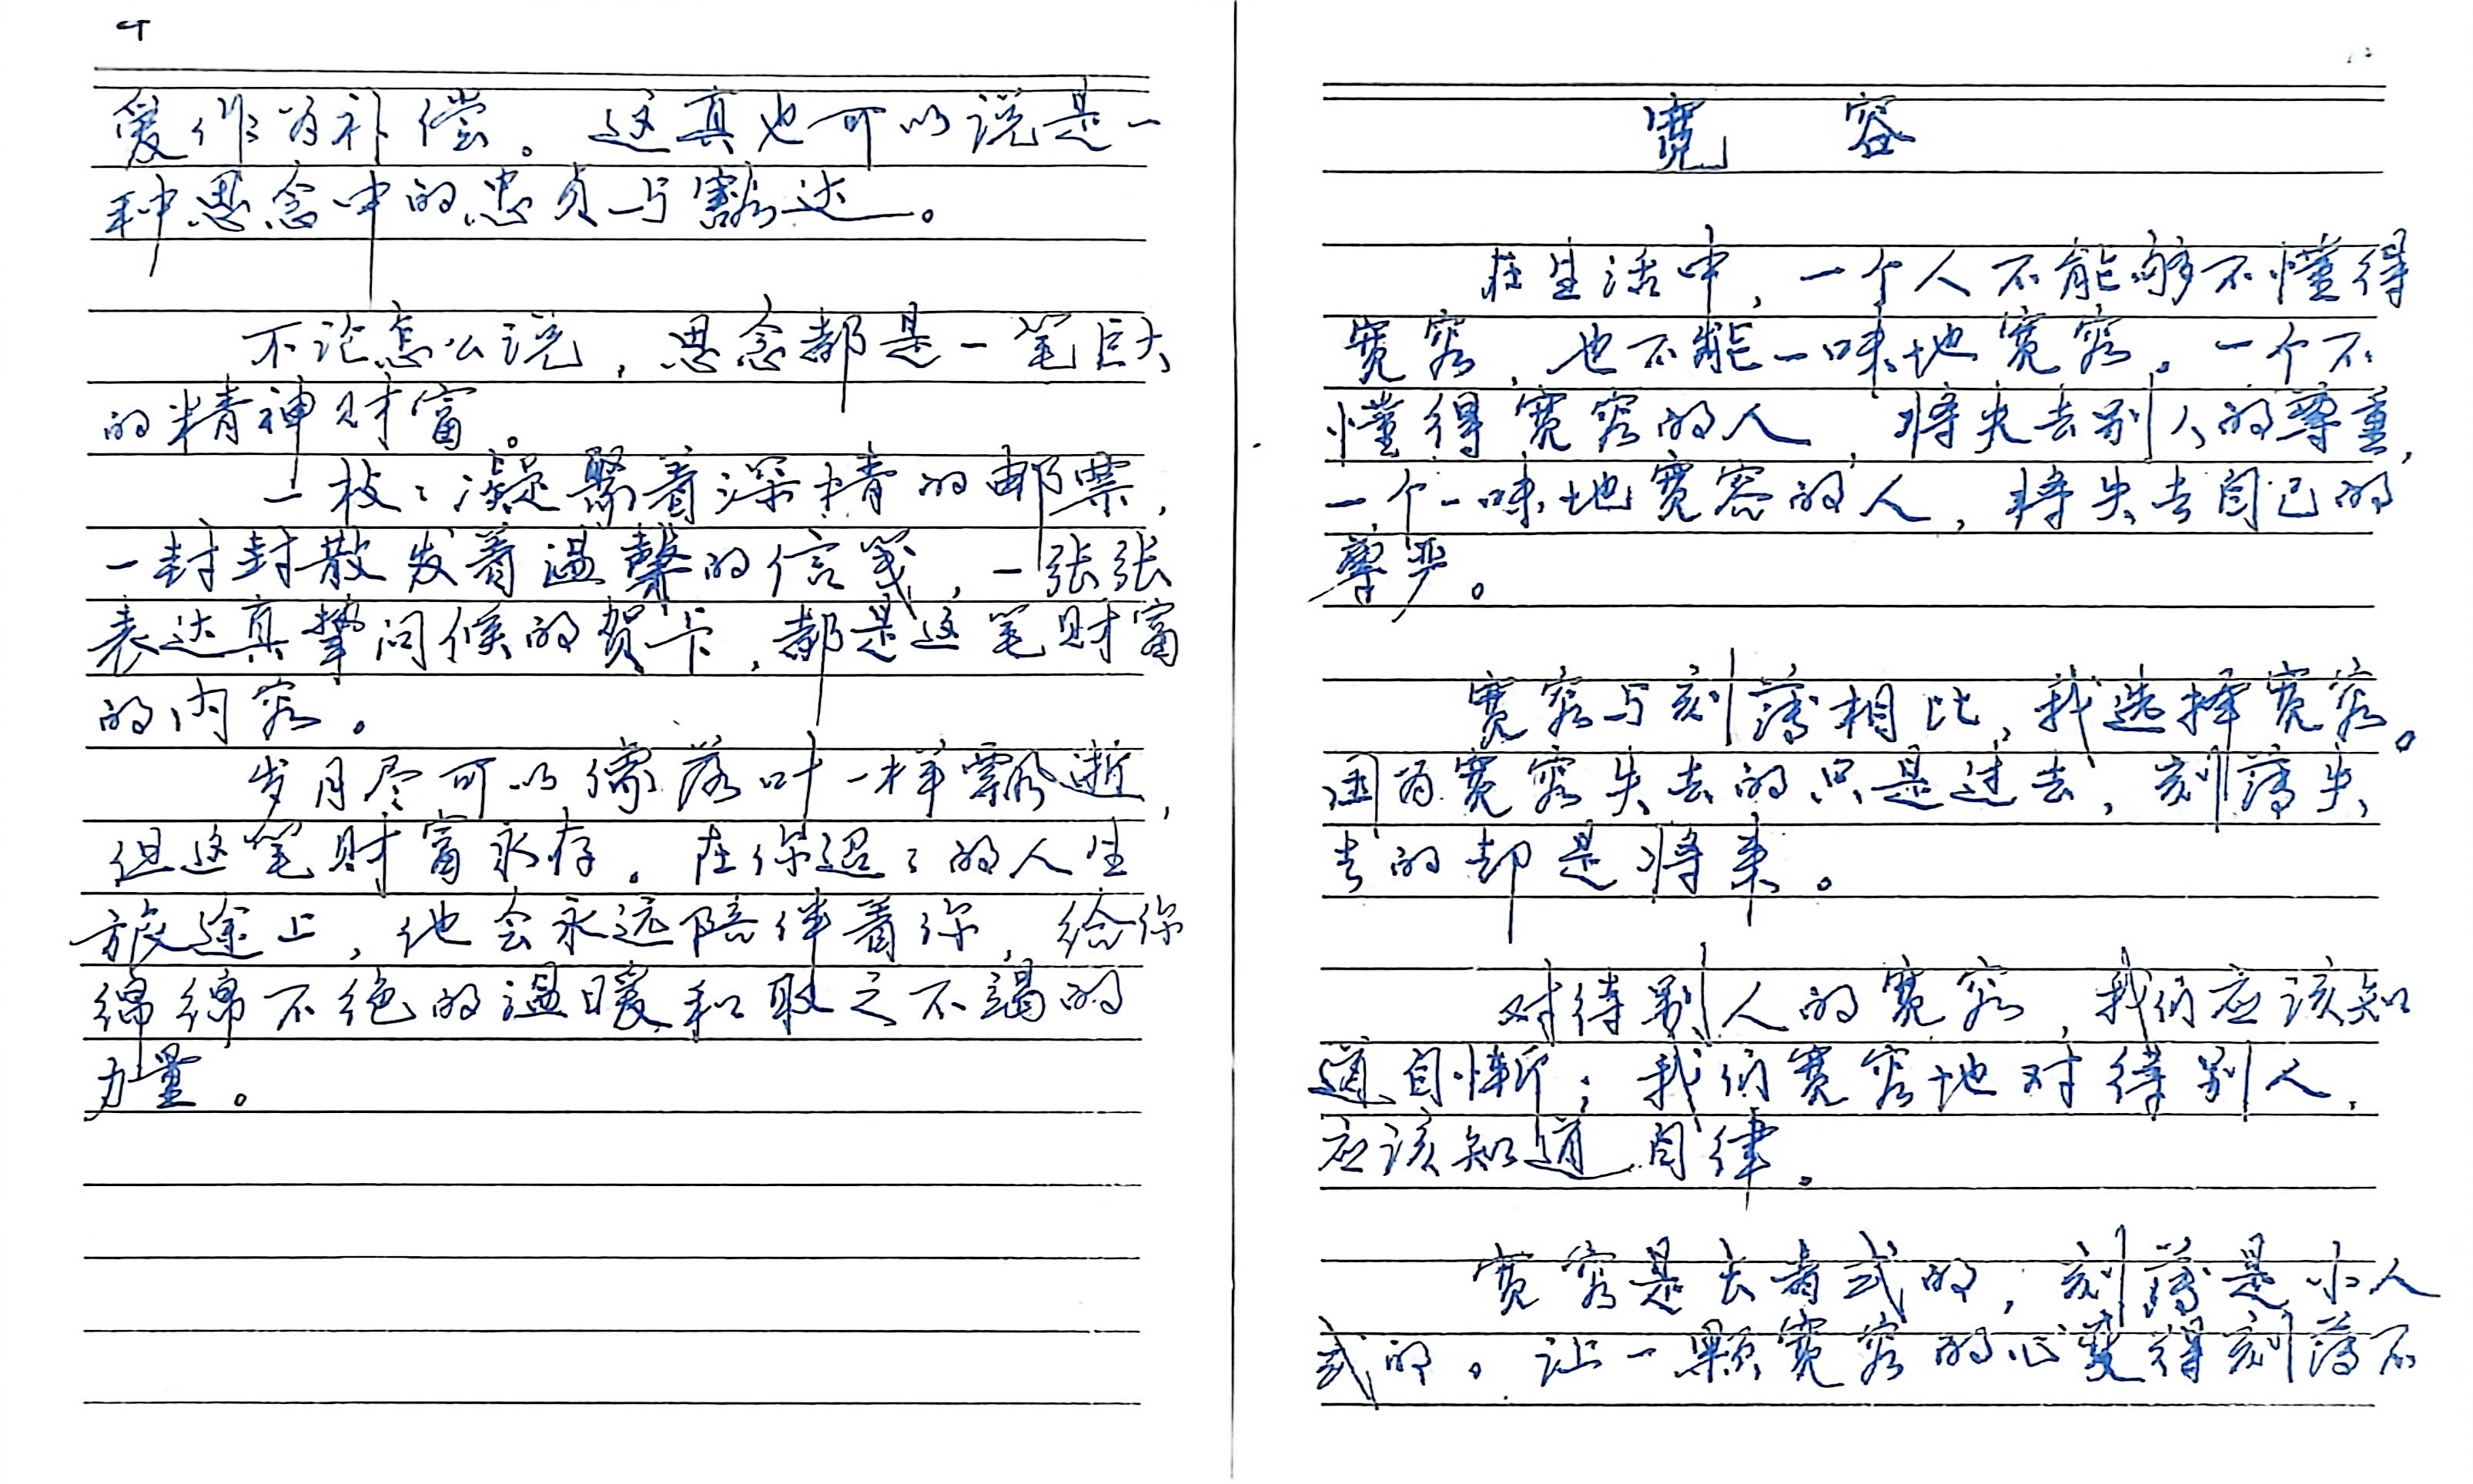 爱作为补偿。这真也可以说是一
种思念中的忠贞与豁达。
不论怎么说，思念都是一笔巨大
的精神财富。
一枚々凝聚着深情的邮票，
一封封散发着温馨的信笺，一张张
表达真挚问候的贺卡，都是这笔财富
的内容。
岁月尽可以像落叶一样飘逝，
但这笔财富永存。在你迢々的人生
旅途上，他会永远陪伴着你，给你
绵绵不绝的温暖和取之不竭的
力量。
宽 容
在生活中，一个人不能够不懂得
宽容，也不能一味地宽容。一个不
懂得宽容的人，将失去别人的尊重，
一个一味地宽容的人，将失去自己的
尊严。
宽容与刻薄相比，我选择宽容。
因为宽容失去的只是过去，刻薄失
去的却是将来。
对待别人的宽容，我们应该知
道自惭；我们宽容地对待别人，
应该知道自律。
宽容是长者式的，刻薄是小人
式的。让一颗宽容的心变得刻薄不